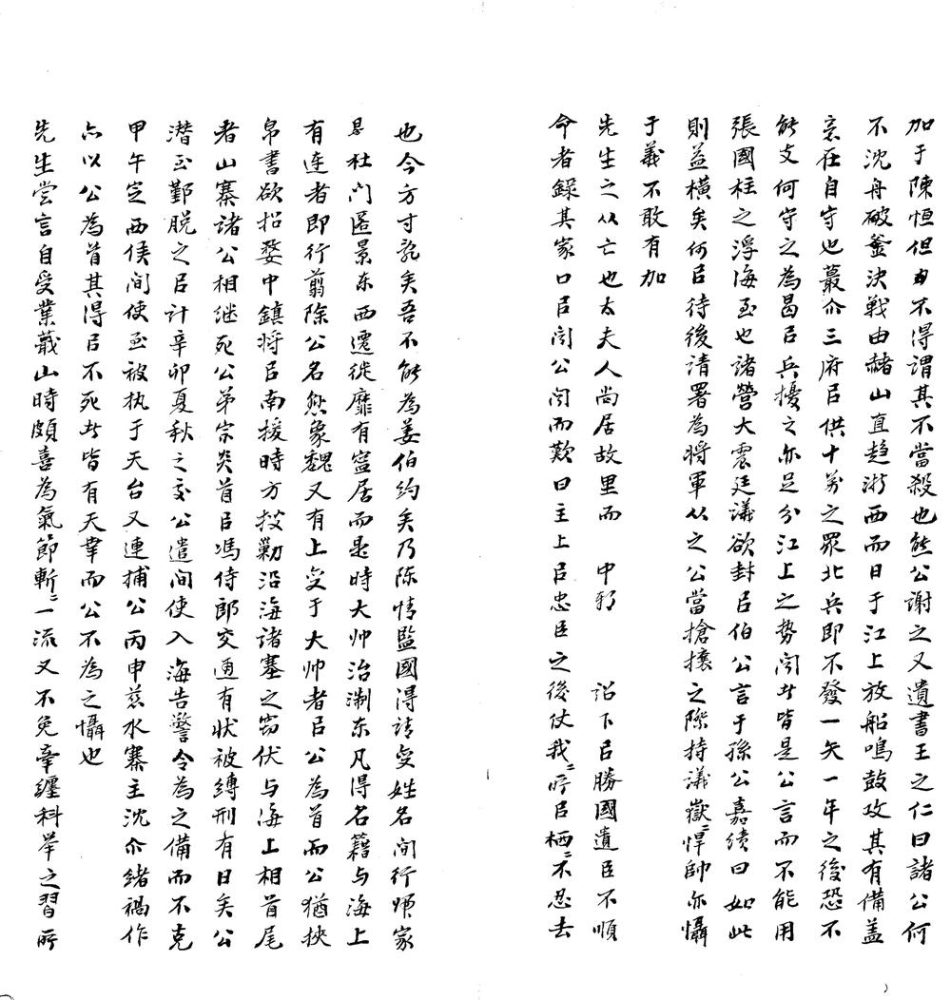 加于陳恒但不得謂其不當殺也熊公謝之又遺書王之仁曰諸公何
不沈舟破釜決戰由赭山直趨浙西而日于江上放船鳴鼓攻其有備蓋
意在自守也蕞尒三府㠯供十萬之眾北兵即不發一矢一年之後恐不
能支何守之為曷㠯兵擾之亦足分江上之勢聞者皆是公言而不能用
張國柱之浮海至也諸營大震廷議欲封㠯伯公言于孫公嘉績曰如此
則益橫矣何㠯待後請署為將軍從之公當搶攘之際持議嶽〻悍帥亦懾
于義不敢有加
先生之從亡也太夫人尚居故里而 中朝 詔下㠯勝國遺臣不順
命者錄其家口㠯聞公聞而歎曰主上㠯忠臣之後仗我〻所㠯栖〻不忍去
也今方寸亂矣吾不能為姜伯約矣乃陈情監國得請变姓名间行歸家
是 杜门匿景东西遷徙靡有寧居而是時大帅治浙东凡得名籍与海上
有连者即行翦除公名懸象魏又有上变于大帅者㠯公為首而公猶挾
帛書欲招婺中鎮将㠯南援時方搜勦沿海诸寨之窃伏与海上相首尾
者山寨諸公相继死公弟宗炎首㠯馮侍郎交通有状被縛刑有日矣公
潛至鄞脱之㠯计辛卯夏秋之交公遣间使入海告警令為之備而不克
甲午定西侯间使至被执于天台又連捕公丙申慈水寨主沈尒緒禍作
亦以公為首其得㠯不死者皆有天幸而公不為之懾也
先生嘗言自受業蕺山時頗喜為氣節斬〻一流又不免牽纏科举之習所